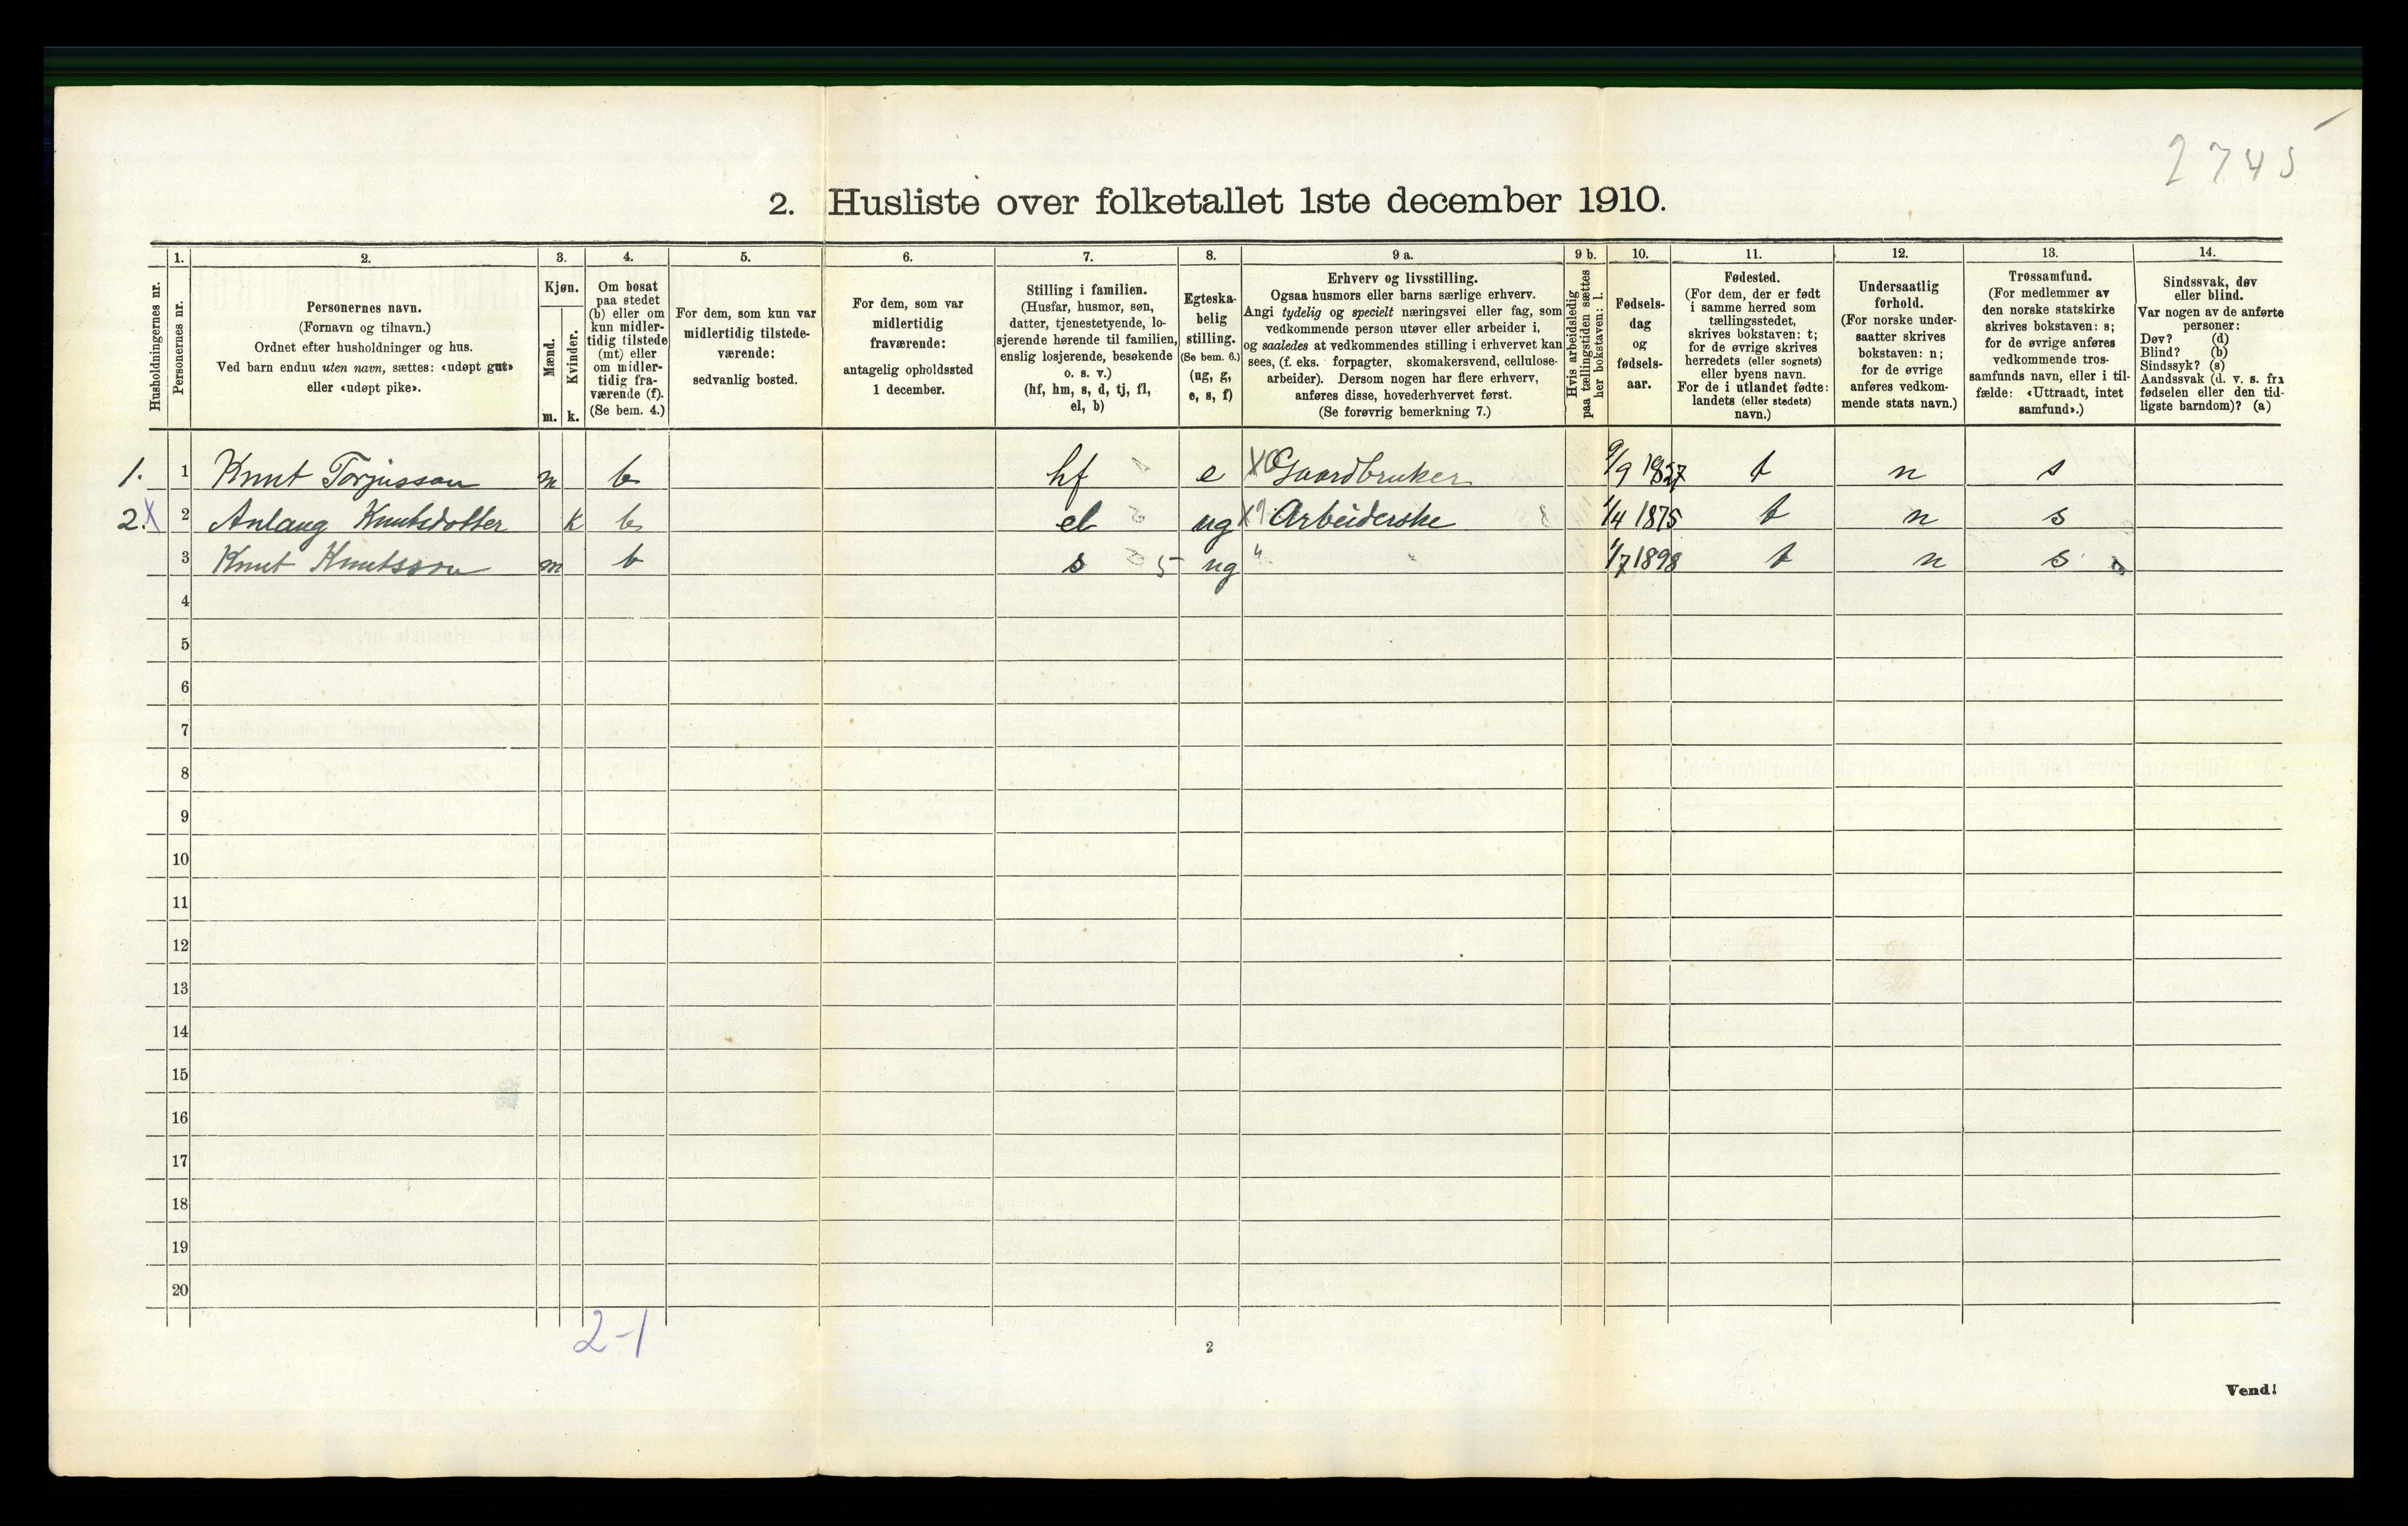 2745
2. Husliste over folketallet 1ste december 1910.
Husholdningernes nr.
1.
Personernes nr.
2.
Personernes navn.
(Fornavn og tilnavn.)
Ordnet efter husholdninger og hus.
Ved barn endnu uten navn, sættes: «udøpt gut»
eller «udøpt pike».
3.
Kjøn.
Mænd.
m.
Kvinder.
k.
4.
Om bosat
paa stedet
(b) eller om
kun midler-
tidig tilstede
(mt) eller
om midler-
tidig fra-
værende (f).
(Se bem. 4.)
5.
For dem, som kun var
midlertidig tilstede-
værende:
sedvanlig bosted.
6.
For dem, som var
midlertidig
fraværende:
antagelig opholdssted
1 december.
7.
Stilling i familien.
(Husfar, husmor, søn,
datter, tjenestetyende, lo-
sjerende hørende til familien,
enslig losjerende, besøkende
o. s. v.)
(hf, hm, s, d, tj, fl,
el, b)
8.
Egteska-
belig
stilling.
(Se bem. 6.)
(ug, g,
e, s, f)
9 a.
Erhverv og livsstilling.
Ogsaa husmors eller barns særlige erhverv.
Angi tydelig og specielt næringsvei eller fag, som
vedkommende person utøver eller arbeider i,
og saaledes at vedkommendes stilling i erhvervet kan
sees, (f. eks. forpagter, skomakersvend, cellulose-
arbeider). Dersom nogen har flere erhverv,
anføres disse, hovederhvervet først.
(Se forøvrig bemerkning 7.)
9 b.
Hvis arbeidsledig
paa tællingstiden sættes
her bokstaven: l.
10.
Fødsels-
dag
og
fødsels-
aar.
11.
Fødested.
(For dem, der er født
i samme herred som
tællingsstedet,
skrives bokstaven: t;
for de øvrige skrives
herredets (eller sognets)
eller byens navn.
For de i utlandet fødte:
landets (eller stedets)
navn.)
12.
Undersaatlig
forhold.
(For norske under-
saatter skrives
bokstaven: n;
for de øvrige
anføres vedkom-
mende stats navn.)
13.
Trossamfund.
(For medlemmer av
den norske statskirke
skrives bokstaven: s;
for de øvrige anføres
vedkommende tros-
samfunds navn, eller i til-
fælde: «Uttraadt, intet
samfund».)
14.
Sindssvak, døv
eller blind.
Var nogen av de anførte
personer:
Døv? (d)
Blind? (b)
Sindssyk? (s)
Aandssvak (d. v. s. fra
fødselen eller den tid-
ligste barndom)? (a)
1. 1 Knut Torjusson m b hf e X Gaardbruker 9/9 1827 t n s
2. X 2 Anlaug Knutsdotter k b el ug X9 Arbeiderske 1/4 1875 t n s
3 Knut Knutsson m b s 5 ug " 1/7 1898 t n s
4
5
6
7
8
9
10
11
12
13
14
15
16
17
18
19
20
2-1
2
Vend!